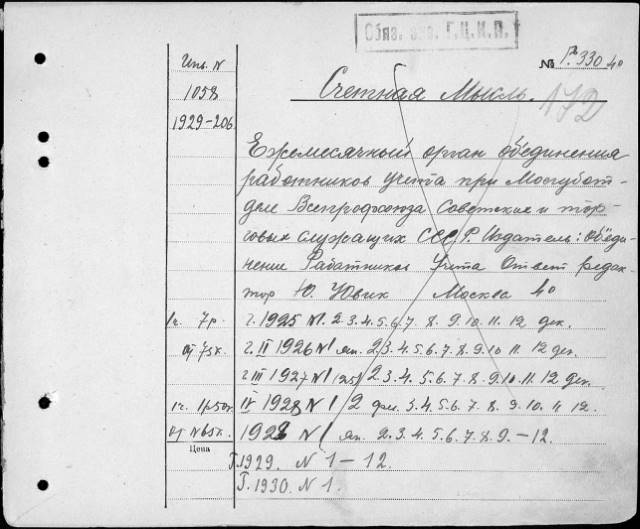 Обяз. экз. Г.Ц.К.П.
№ 40
Инв. N
1058
1929-206
Счетная Мысль.
Ежемесячный орган объединения
работников учета при Мосгубот-
деле Всепрофсоюза Советских и тор-
говых служащих СССР. Издатель: Объеди-
нение Работников Учета Ответ редак-
тор Ю. Ювик Москва 4°
1ч. 7р. г. 1925 N 1. 2. 3. 4. 5. 6. 7. 8. 9. 10. 11. 12 дек.
г. II 1926 N 1 ян. 2. 3. 4. 5. 6. 7. 8. 9. 10 11. 12 дек.
г. III 1927 N 1 (25) 2. 3. 4. 5. 6. 7. 8. 9. 10. 11. 12 дек.
IV 1928 N 1 2 фев. 3. 4. 5. 6. 7. 8. 9. 10. 11 12.
1928 N 1 ян. 2. 3. 4. 5. 6. 7. 8. 9. -12.
Цена
Г. 1929. N 1-12.
Г. 1930. N 1.